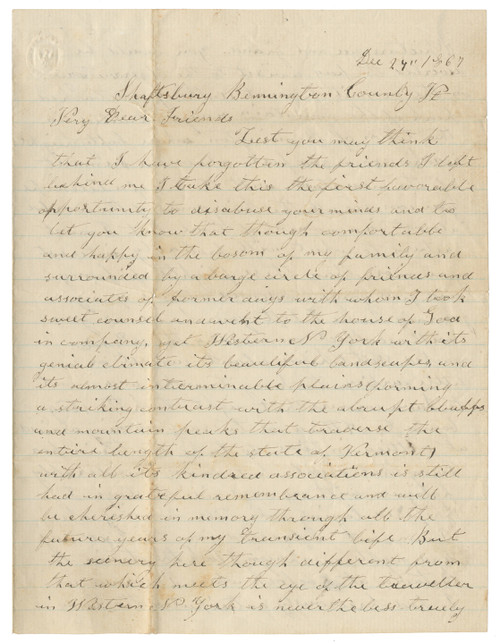 Dec 24th 1867
Shaftsbury Bennington County Vt
Very Dear Friends
Lest you may think
that I have forgotten the friends I left
behind me I take this the first favorable
opportunity to disabuse your minds and to
let you know that though comfortable
and happy in the bosom of my family and
surrounded by a large circle of friends and
associates of former days with whom I took
sweet counsel and went to the house of God
in company, yet Western N York with its
genial climate its beautiful landscapes and
its almost interminable plains (forming
a striking contrast with the abrupt bluffs
and mountain peaks that traverse the
entire length of the state of Vermont)
with all its kindred associations is still
had in grateful remembrance and will
be cherished in memory through all the
future years of my transient life But
the scenery here though different from
that which meets the eye of the traveller
in Western N York is nevertheless truely